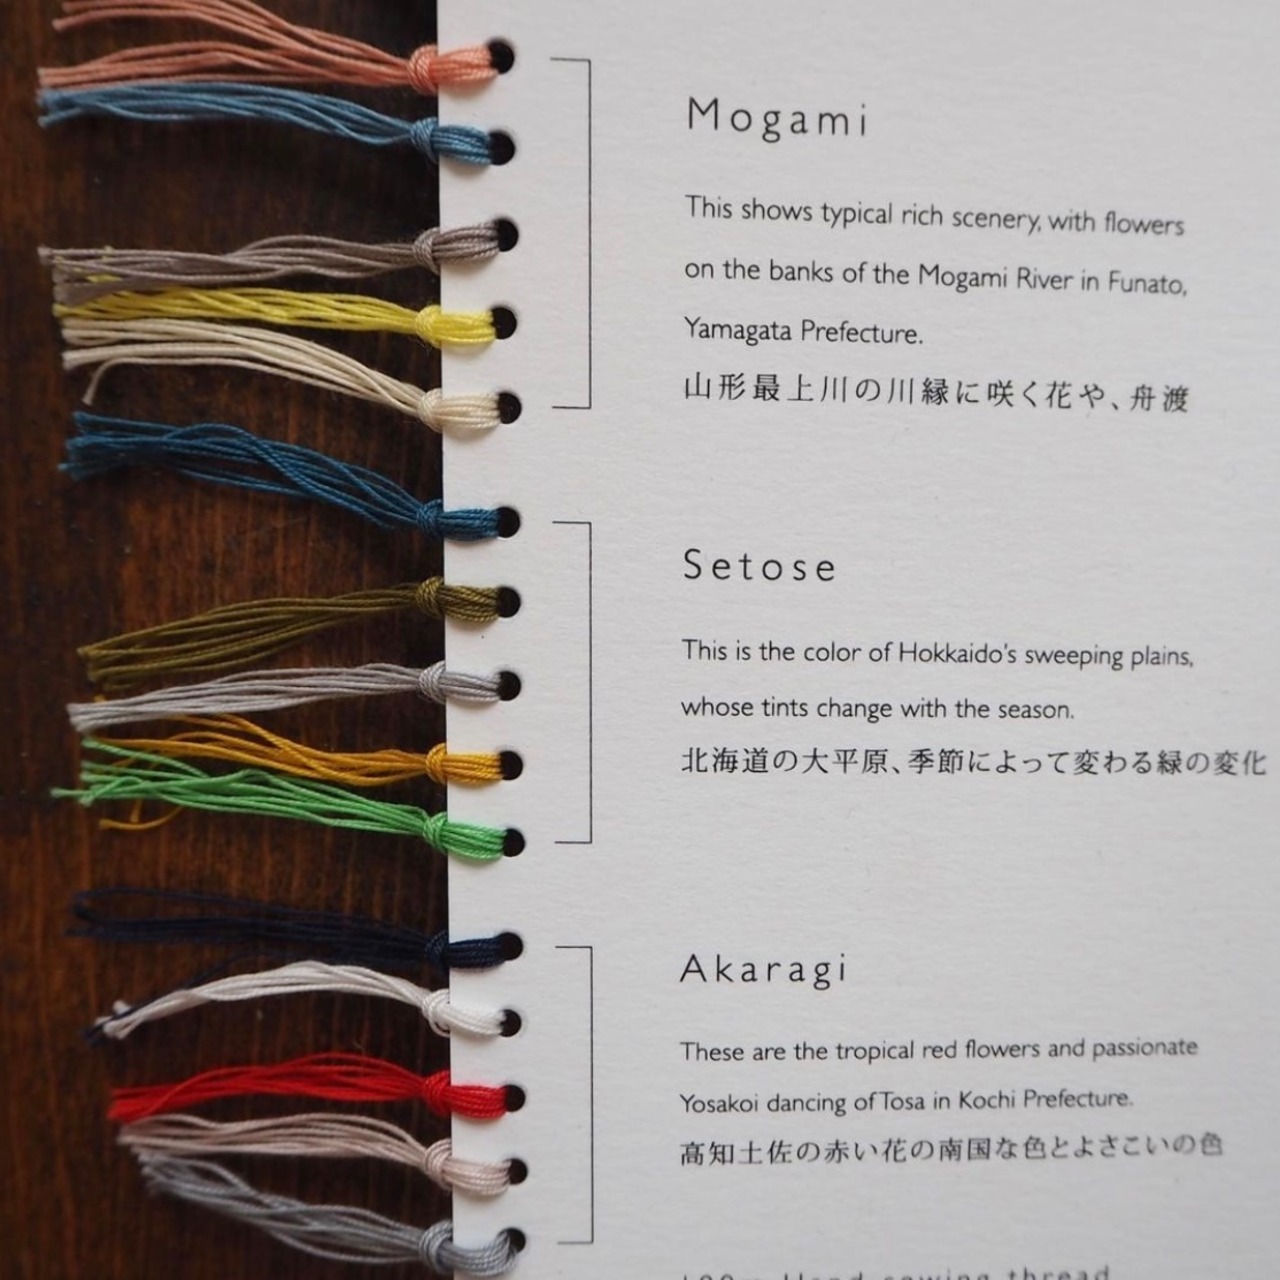 Mogami
This shows typical rich scenery, with flowers
on the banks of the Mogami River in Funato,
Yamagata Prefecture.
山形最上川の川縁に咲く花や、舟渡
Setose
This is the color of Hokkaido's sweeping plains,
whose tints change with the season.
北海道の大平原、季節によって変わる緑の変化
Akaragi
These are the tropical red flowers and passionate
Yosakoi dancing of Tosa in Kochi Prefecture.
高知土佐の赤い花の南国な色とよさこいの色
Hand sewing thread